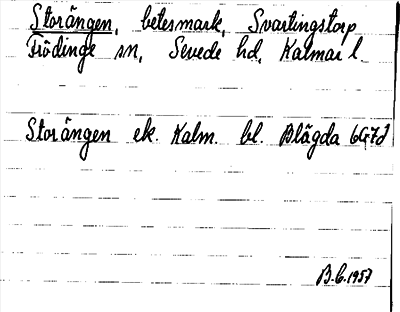 Storängen, betesmark, Svartingstorp
Frödinge sn, Sevede hd, Kalmar l.
Storängen ek. Kalm. bl. Blägda 6G7J
B.C. 1957